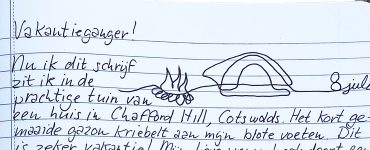 Vakantieganger!
Nu ik dit schrijf
zit ik in de
8 juli
prachtige tuin van
een huis in Chafford Hill, Cotswolds. Het kort ge-
maaide gazon kriebelt aan mijn blote voeten. Dit
is zeker vakantie!